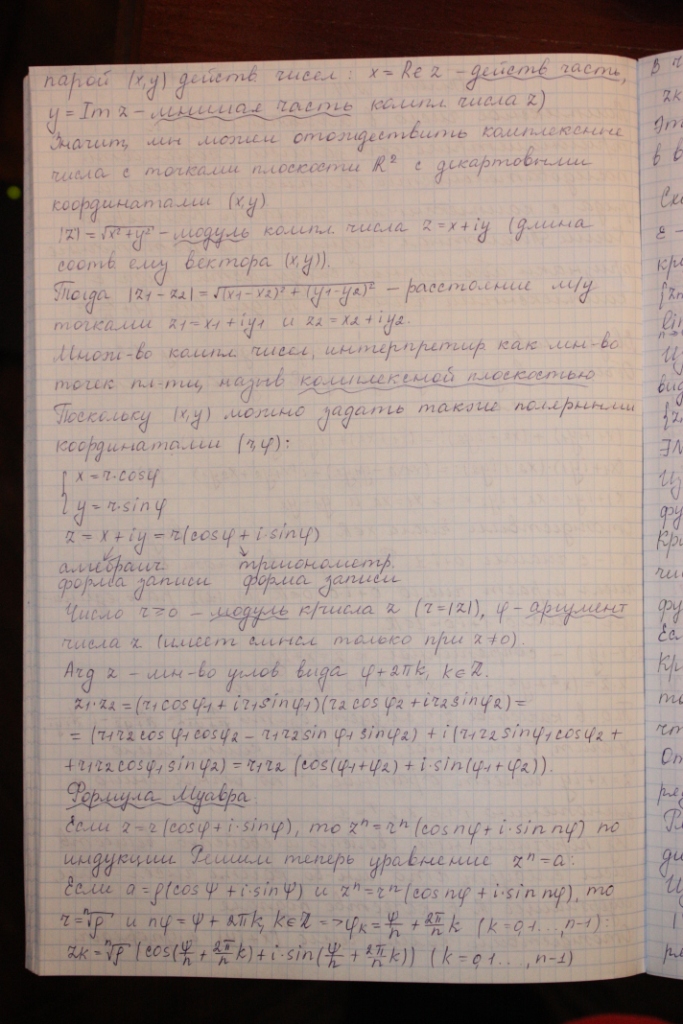 парой (x,y) действ чисел: x = Re z - действ часть,
y = Im z - мнимая часть компл числа z)
Значит, мы можем отождествить комплексные
числа с точками плоскости R² с декартовыми
координатами (x,y)
|z| = √x²+y² - модуль компл числа z = x+iy (длина
соотв ему вектора (x,y)).
Тогда |z1 - z2| = √(x1-x2)² + (y1-y2)² - расстояние м/у
точками z1 = x1 + iy1 и z2 = x2 + iy2.
Множ-во компл чисел, интерпретир как мн-во
точек пл-ти, назыв комплексной плоскостью
Поскольку (x,y) можно задать также полярными
координатами (r,φ):
{ x = r·cosφ
y = r·sinφ
z = x + iy = r(cosφ + i·sinφ)
алгебраич. тригонометр.
форма записи форма записи
Число r≥0 - модуль к числа z (r=|z|), φ - аргумент
числа z (имеет смысл только при z≠0).
Arg z - мн-во углов вида φ+2πk, k∈Z.
z1·z2 = (r1cosφ1 + ir1sinφ1)(r2cosφ2 + ir2sinφ2) =
= (r1r2cosφ1cosφ2 - r1r2sinφ1sinφ2) + i(r1r2sinφ1cosφ2 +
+ r1r2cosφ1sinφ2) = r1r2 (cos(φ1+φ2) + i·sin(φ1+φ2)).
Формула Муавра
Если z = r(cosφ + i·sinφ), то zⁿ = rⁿ(cosnφ + i·sin nφ) по
индукции Решим теперь уравнение zⁿ = a:
Если a = ρ(cosψ + i·sinψ) и zⁿ = rⁿ(cosnφ + i·sinnφ), то
r = ⁿ√ρ и nφ = ψ + 2πk, k∈Z => φk = ψ/n + 2π/n k (k = 0,1...,n-1):
zk = ⁿ√ρ (cos(ψ/n + 2π/n k) + i·sin(ψ/n + 2π/n k)) (k = 0,1...,n-1)